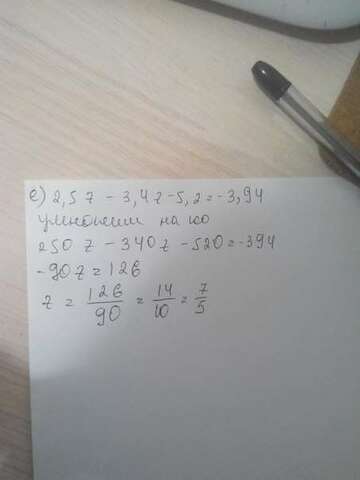 е) 2,5z - 3,4z - 5,2 = -3,94
умножим на 100
250 z - 340z - 520 = -394
-90z = 126
z = 126/90 = 14/10 = 7/5